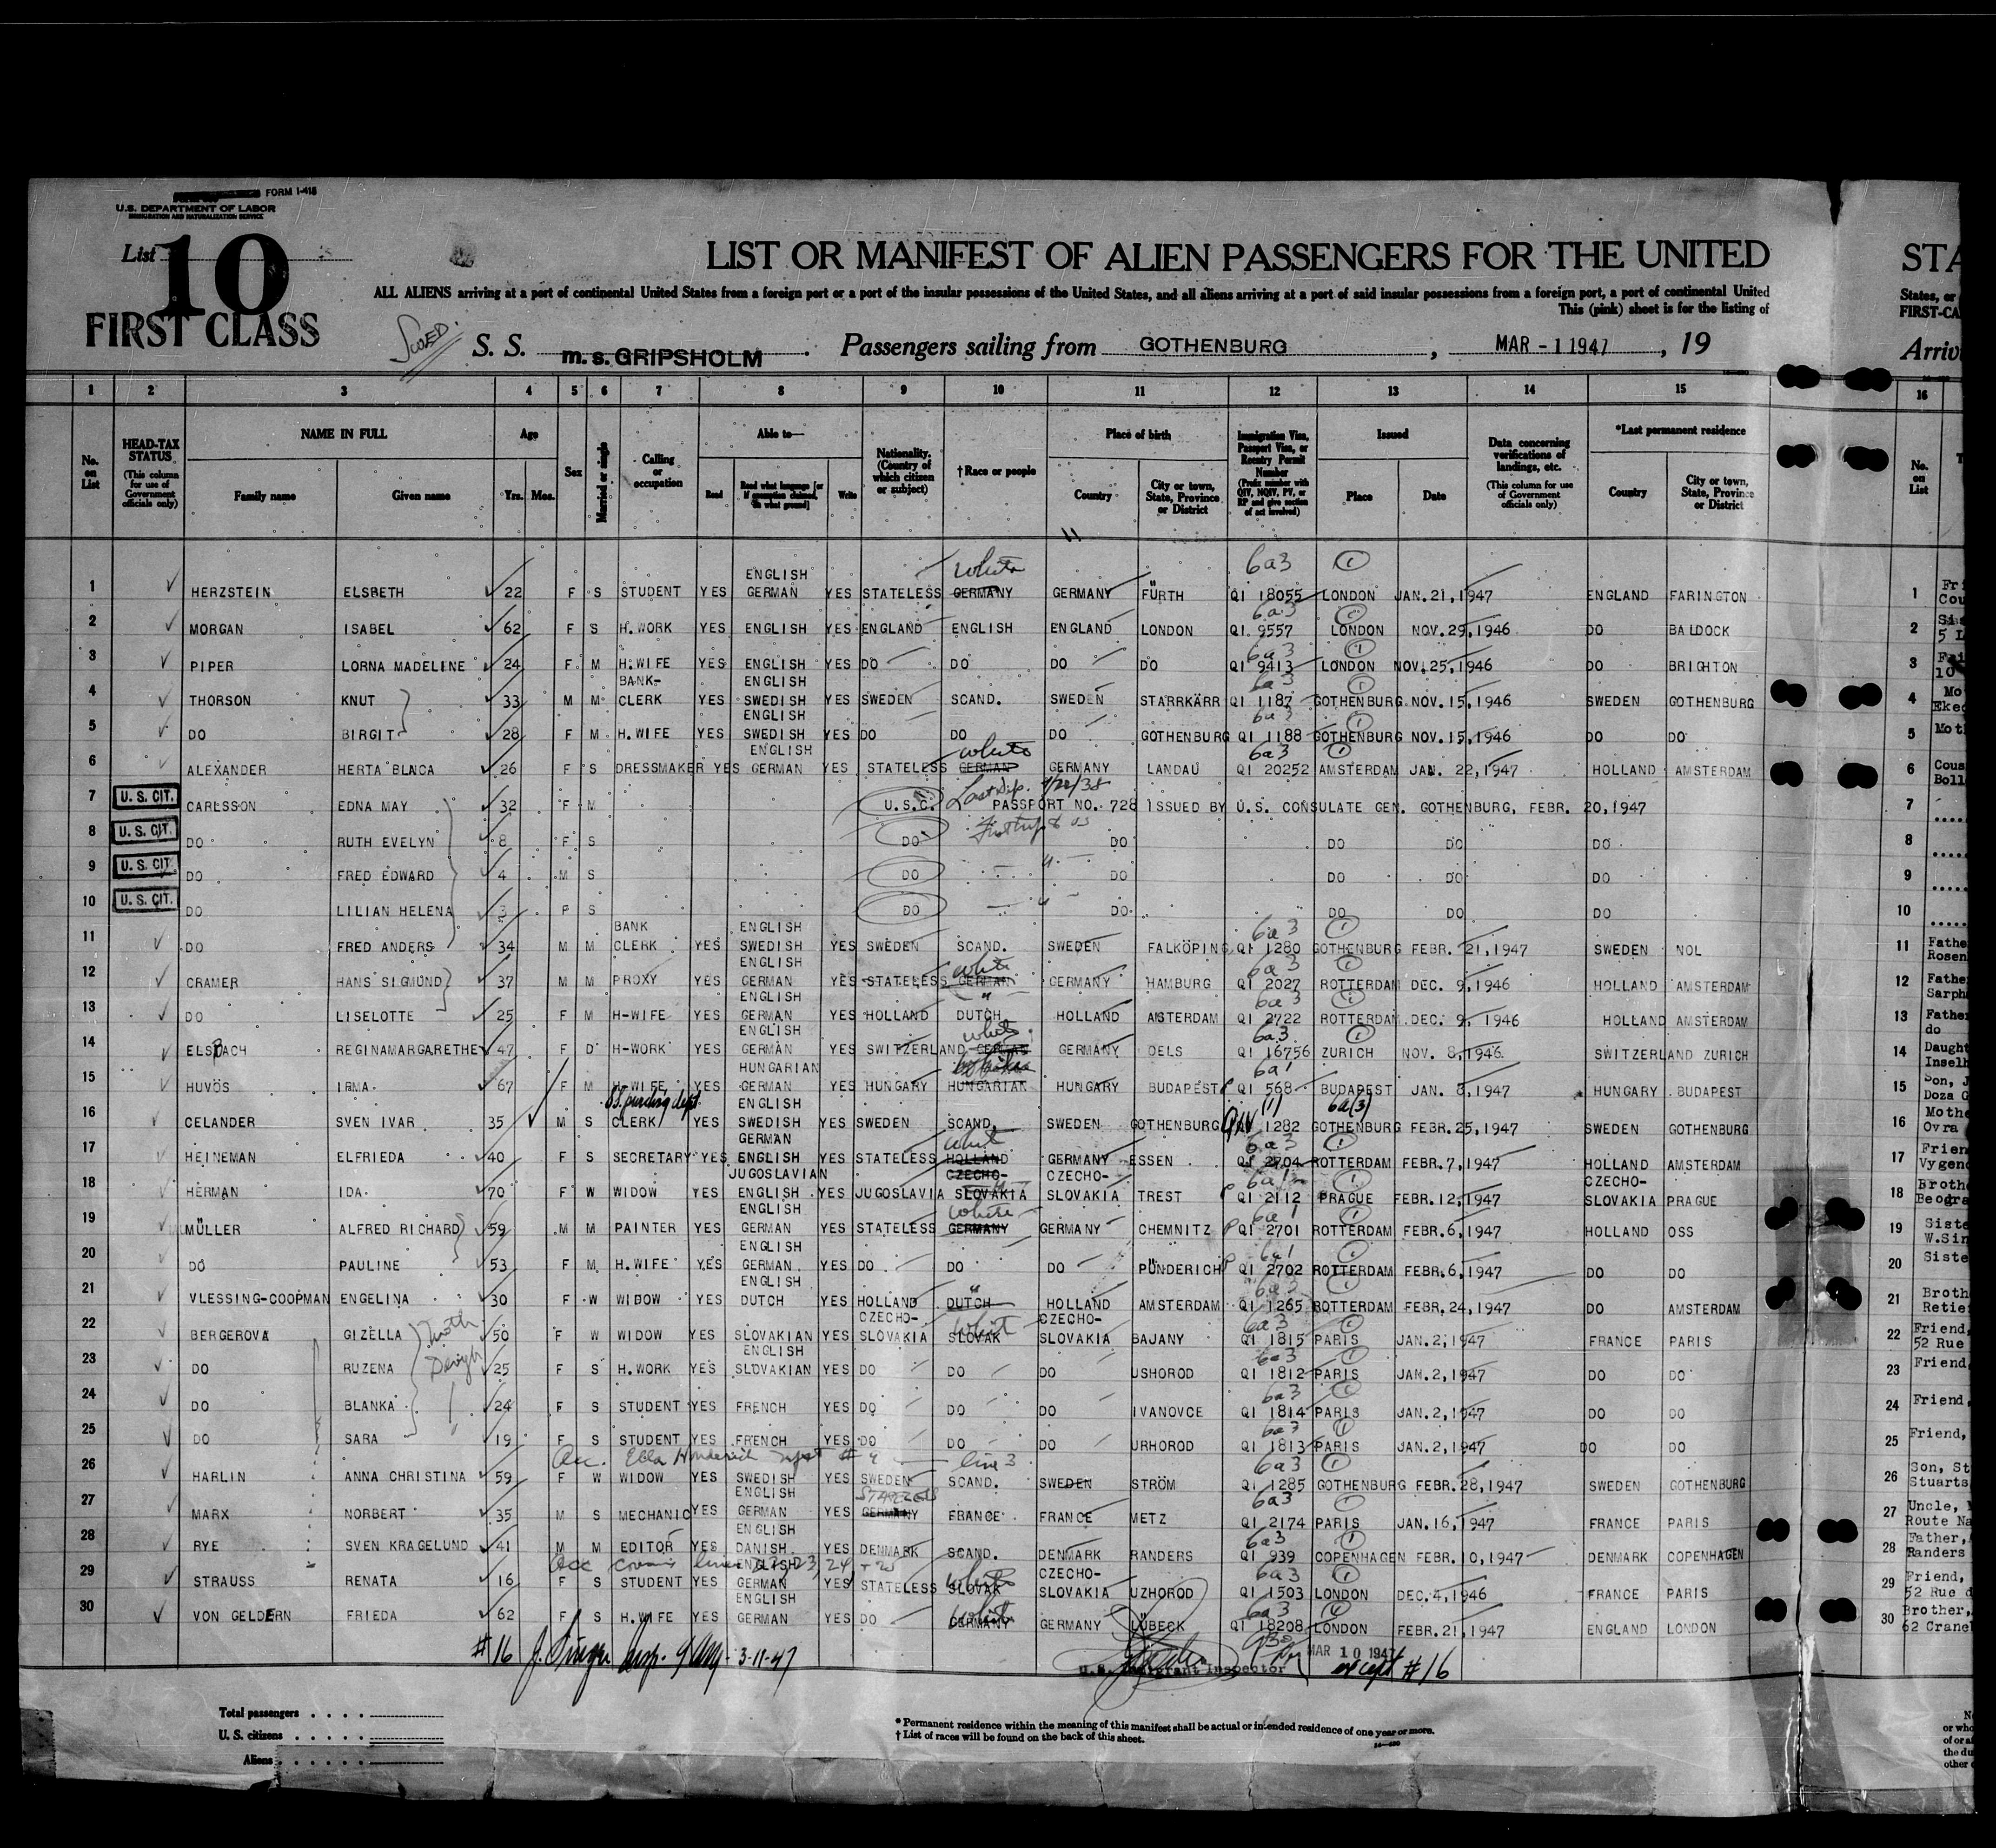 FORM I-418
U.S. DEPARTMENT OF LABOR
IMMIGRATION AND NATURALIZATION SERVICE
List 10
FIRST CLASS
LIST OR MANIFEST OF ALIEN PASSENGERS FOR THE UNITED
STA
ALL ALIENS arriving at a port of continental United States from a foreign port or a port of the insular possessions of the United States, and all aliens arriving at a port of said insular possessions from a foreign port, a port of continental United
States, or
This (pink) sheet is for the listing of
FIRST-CA
S. S. m. s. GRIPSHOLM. Passengers sailing from GOTHENBURG, MAR - 1 1947, 19
Arriv
1 2 3 4 5 6 7 8 9 10 11 12 13 14 15 16
No. on List
HEAD-TAX STATUS (This column for use of Government officials only)
NAME IN FULL Family name Given name
Age Yrs. Mos.
Sex
Married or single
Calling or occupation
Able to— Read Read what language [or if exemption claimed, on what ground] Write
Nationality. (Country of which citizen or subject)
†Race or people
Place of birth Country City or town, State, Province or District
Immigration Visa, Passport Visa, or Reentry Permit Number (Prefix number with QIV, NQIV, PV, or RP and give section of act involved)
Issued Place Date
Data concerning verifications of landings, etc. (This column for use of Government officials only)
*Last permanent residence Country City or town, State, Province or District
No. on List
1 HERZSTEIN ELSBETH 22 F S STUDENT YES ENGLISH GERMAN YES STATELESS GERMANY white GERMANY FÜRTH 6a3 QI 18055 LONDON JAN. 21, 1947 ENGLAND FARINGTON 1
2 MORGAN ISABEL 62 F S H. WORK YES ENGLISH YES ENGLAND ENGLISH ENGLAND LONDON 6a3 QI 9557 LONDON NOV. 29, 1946 DO BALDOCK 2
3 PIPER LORNA MADELINE 24 F M H. WIFE YES ENGLISH YES DO DO DO DO 6a3 QI 9413 LONDON NOV. 25, 1946 DO BRIGHTON 3
4 THORSON KNUT 33 M M BANK- CLERK YES ENGLISH SWEDISH YES SWEDEN SCAND. SWEDEN STARRKÄRR 6a3 QI 1187 GOTHENBURG NOV. 15, 1946 SWEDEN GOTHENBURG 4
5 DO BIRGIT 28 F M H. WIFE YES ENGLISH SWEDISH YES DO DO DO GOTHENBURG 6a3 QI 1188 GOTHENBURG NOV. 15, 1946 DO DO 5
6 ALEXANDER HERTA BLNCA 26 F S DRESSMAKER YES ENGLISH GERMAN YES STATELESS GERMAN white GERMANY LANDAU 6a3 QI 20252 AMSTERDAM JAN. 22, 1947 HOLLAND AMSTERDAM 6
7 U. S. CIT. CARLSSON EDNA MAY 32 F M U.S.C. PASSPORT NO. 728 ISSUED BY U.S. CONSULATE GEN. GOTHENBURG, FEBR. 20, 1947 7
8 U. S. CIT. DO RUTH EVELYN 8 F S DO DO DO DO DO 8
9 U. S. CIT. DO FRED EDWARD 4 M S DO DO DO DO DO 9
10 U. S. CIT. DO LILIAN HELENA 3 F S DO DO DO DO DO 10
11 DO FRED ANDERS 34 M M BANK CLERK YES ENGLISH SWEDISH YES SWEDEN SCAND. SWEDEN FALKÖPING 6a3 QI 1280 GOTHENBURG FEBR. 21, 1947 SWEDEN NOL 11
12 CRAMER HANS SIGMUND 37 M M PROXY YES ENGLISH GERMAN YES STATELESS GERMAN white GERMANY HAMBURG 6a3 QI 2027 ROTTERDAM DEC. 9, 1946 HOLLAND AMSTERDAM 12
13 DO LISELOTTE 25 F M H-WIFE YES ENGLISH GERMAN YES HOLLAND DUTCH HOLLAND AMSTERDAM 6a3 QI 2722 ROTTERDAM DEC. 9, 1946 HOLLAND AMSTERDAM 13
14 ELSBACH REGINAMARGARETHE 47 F D H-WORK YES ENGLISH GERMAN YES SWITZERLAND GERMAN white GERMANY OELS 6a3 QI 16756 ZURICH NOV. 8, 1946 SWITZERLAND ZURICH 14
15 HUVÖS IRMA 67 F M H-WIFE YES HUNGARIAN GERMAN YES HUNGARY HUNGARIAN HUNGARY BUDAPEST 6a1 QI 568 BUDAPEST JAN. 8, 1947 HUNGARY BUDAPEST 15
16 CELANDER SVEN IVAR 35 M S CLERK YES ENGLISH SWEDISH YES SWEDEN SCAND. SWEDEN GOTHENBURG QIV 1282 6a(3) GOTHENBURG FEBR. 25, 1947 SWEDEN GOTHENBURG 16
17 HEINEMAN ELFRIEDA 40 F S SECRETARY YES GERMAN ENGLISH YES STATELESS HOLLAND white GERMANY ESSEN 6a3 QI 2704 ROTTERDAM FEBR. 7, 1947 HOLLAND AMSTERDAM 17
18 HERMAN IDA 70 F W WIDOW YES JUGOSLAVIAN ENGLISH YES JUGOSLAVIA CZECHO-SLOVAKIA CZECHO-SLOVAKIA TREST 6a1 QI 2112 PRAGUE FEBR. 12, 1947 CZECHO-SLOVAKIA PRAGUE 18
19 MÜLLER ALFRED RICHARD 59 M M PAINTER YES ENGLISH GERMAN YES STATELESS GERMANY white GERMANY CHEMNITZ 6a1 QI 2701 ROTTERDAM FEBR. 6, 1947 HOLLAND OSS 19
20 DO PAULINE 53 F M H. WIFE YES ENGLISH GERMAN YES DO DO DO PÜNDERICH 6a1 QI 2702 ROTTERDAM FEBR. 6, 1947 DO DO 20
21 VLESSING-COOPMAN ENGELINA 30 F W WIDOW YES ENGLISH DUTCH YES HOLLAND DUTCH HOLLAND AMSTERDAM 6a3 QI 1265 ROTTERDAM FEBR. 24, 1947 DO AMSTERDAM 21
22 BERGEROVA GIZELLA 50 F W WIDOW YES SLOVAKIAN YES CZECHO-SLOVAKIA SLOVAK white CZECHO-SLOVAKIA BAJANY 6a3 QI 1815 PARIS JAN. 2, 1947 FRANCE PARIS 22
23 DO RUZENA 25 F S H. WORK YES ENGLISH SLOVAKIAN YES DO DO DO USHOROD 6a3 QI 1812 PARIS JAN. 2, 1947 DO DO 23
24 DO BLANKA 24 F S STUDENT YES FRENCH YES DO DO DO IVANOVCE 6a3 QI 1814 PARIS JAN. 2, 1947 DO DO 24
25 DO SARA 19 F S STUDENT YES FRENCH YES DO DO DO URHOROD 6a3 QI 1813 PARIS JAN. 2, 1947 DO DO 25
26 HARLIN ANNA CHRISTINA 59 F W WIDOW YES SWEDISH YES SWEDEN SCAND. SWEDEN STRÖM 6a3 QI 1285 GOTHENBURG FEBR. 28, 1947 SWEDEN GOTHENBURG 26
27 MARX NORBERT 35 M S MECHANIC YES ENGLISH GERMAN YES GERMANY FRANCE FRANCE METZ 6a3 QI 2174 PARIS JAN. 16, 1947 FRANCE PARIS 27
28 RYE SVEN KRAGELUND 41 M M EDITOR YES ENGLISH DANISH YES DENMARK SCAND. DENMARK RANDERS 6a3 QI 939 COPENHAGEN FEBR. 10, 1947 DENMARK COPENHAGEN 28
29 STRAUSS RENATA 16 F S STUDENT YES ENGLISH GERMAN YES STATELESS SLOVAK white CZECHO-SLOVAKIA UZHOROD 6a3 QI 1503 LONDON DEC. 4, 1946 FRANCE PARIS 29
30 VON GELDERN FRIEDA 62 F S H. WIFE YES ENGLISH GERMAN YES DO GERMANY white GERMANY LÜBECK 6a3 QI 18208 LONDON FEBR. 21, 1947 ENGLAND LONDON 30
#16 3-11-47
U.S. Immigrant Inspector
MAR 10 1947
except #16
Total passengers
U. S. citizens
Aliens
* Permanent residence within the meaning of this manifest shall be actual or intended residence of one year or more.
† List of races will be found on the back of this sheet.